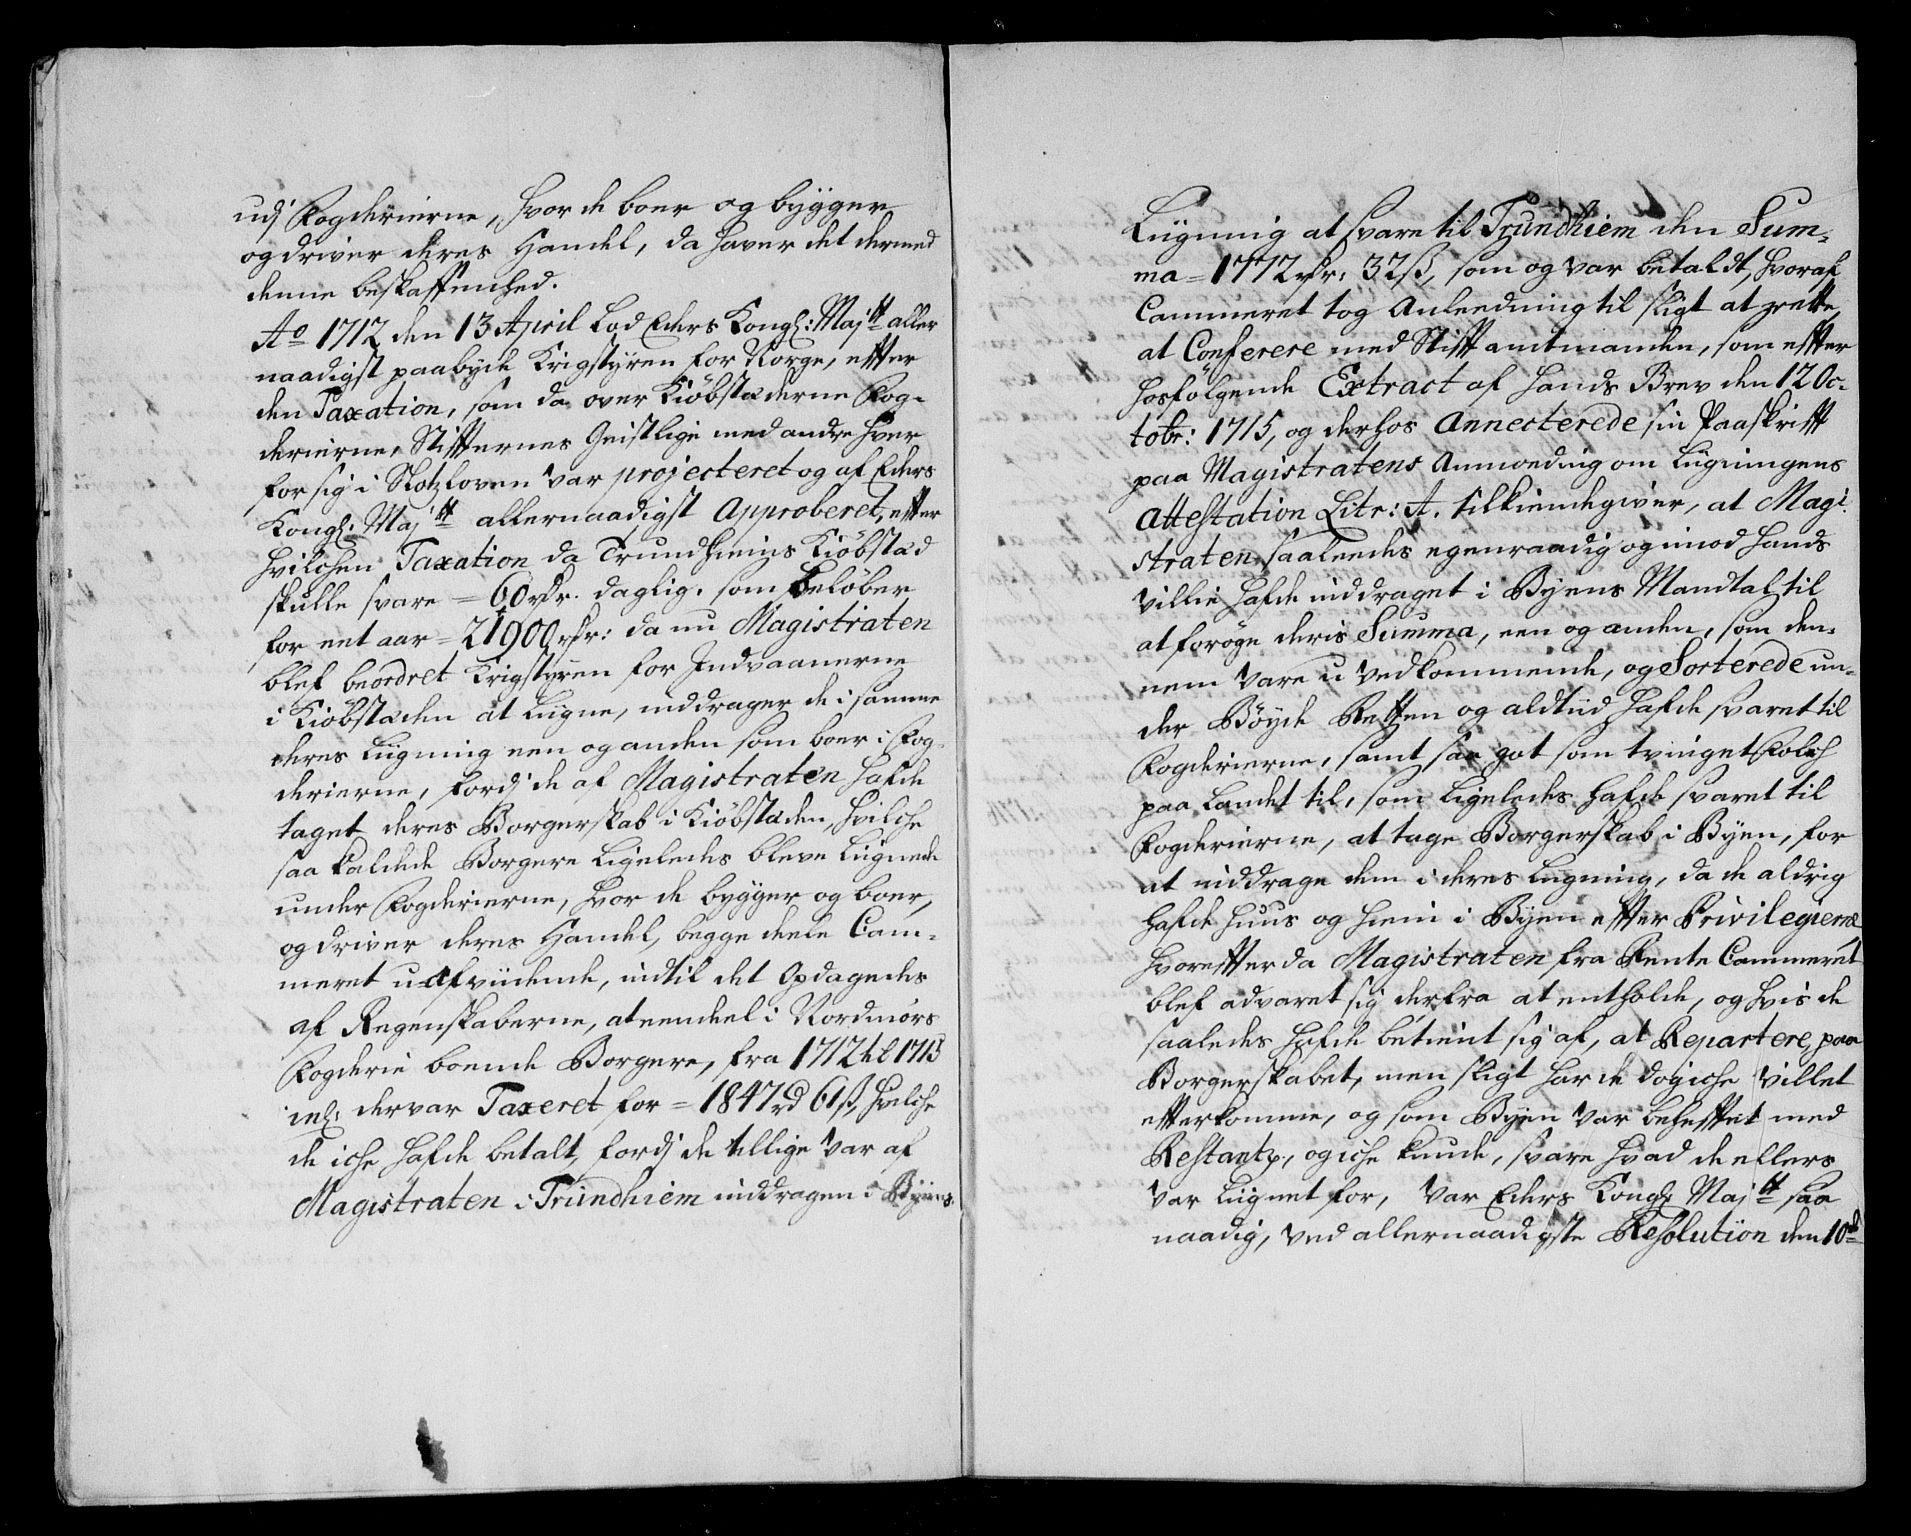 udj Fogderierne, hvor de boer og bygger
og driver deres Handel, da haver det dermed
denne beskaffenhed.
Ao 1712 den 13 April Lod Eders Kongl: Maj.tt aller
naadigst paabyde Krigstyren for Norge, efter
den Taxation, som da over Kiöbstæderne Fog-
derierne, Stiffternes Geistlige med andre hver
for sig i Slotzloven var projecteret og af Eders
Kongl: Maj.tt allernaadigst Approberet, efter
hvilchen Taxation da Trundhiems Kiöbstad
skulle svare = 60 rdr. daglig, som beløber
for eet aar = 21900 rdr: da nu Magistraten
blef beordret Krigstyren for Indvaanerne
i Kiöbstæden at Ligne, inddrager de i samme
deres Ligning een og anden som boer i Fog-
derierne, fordj de af Magistraten hafde
taget deres Borgerskab i Kiöbstæden, hvilche
saa kaldede Borgere Ligeledes bleve Lignede
under Fogderierne, hvor de bygger og boer,
og driver deres Handel, begge deele Cam-
meret uafvidende, indtil det Opdagedes
af Regenskaberne, at eendeel i Nordmörs
Fogderie boende Borgere, fra 1712 til 1715
incl: der var Taxeret for = 1847 rd 61 ß, hvilche
de iche hafde betalt, fordj de tillige var af
Magistraten i Trundhiem inddragen i Byens
Ligning at svare til Trundhiem den Sum-
ma = 1772 rdr: 32 ß, som og var betaldt, hvoraf
Cammeret tog Anleedning til sligt at rette,
at Conferere med Stifftamtmanden, som efter
hosfölgende Extract af hands Brev den 12 Oc-
tobr: 1715, og derhos Annecterede sin Paaskrifft
paa Magistratens Anmoding om Ligningens
Attestation Litr: A. tilkiendegiver, at Magi-
straten saaleedes egenraadig og imod hands
villie hafde inddraget i Byens Mandtal til
at forøge deris Summa, een og anden, som den-
nem vare u vedkommende, og Sorterede un-
der Böyde Retten og aldtiid hafde svaret til
Fogderierne, samt saa got som tvinget Folch
paa Landet til, som ligeledes hafde svaret til
Fogderierne, at tage Borgerskab i Byen, for
at inddrage dem i deres Ligning, da de aldrig
hafde huus og hiem i Byen efter Privilegierne
hvorefter da Magistraten fra Rente Cammeret
blef advaret sig derfra at entholde, og hvis de
saaledes hafde betient sig af, at Repartere paa
Borgerskabet, men sligt har de dog iche villet
efterkomme, og som Byen var behefftet med
Restantz, og iche kunde svare hvad de ellers
var Lignet for, var Eders Kongl: Maj.tt saa
naadig, ved allernaadigste Resolution den 10de